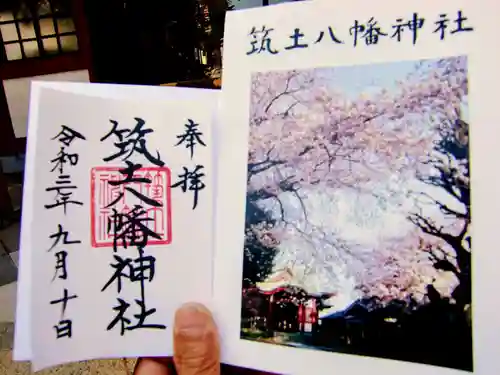 筑土八幡神社
奉拝
筑土八幡神社
令和三年 九月十日